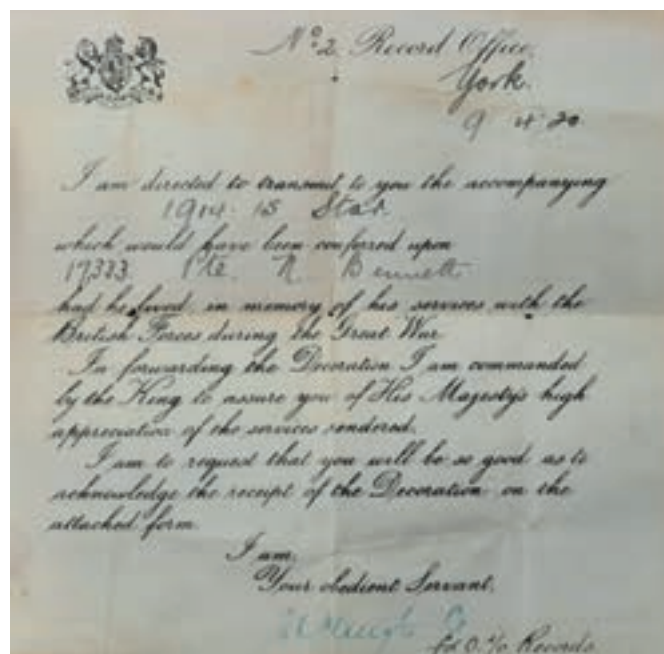 No. 2 Record Office,
York.
9 4 20
I am directed to transmit to you the accompanying
1914 15 Star
which would have been conferred upon
17333 Pte. Bennett
had he lived, in memory of his services with the
British Forces during the Great War
In forwarding the Decoration I am commanded
by the King to assure you of His Majesty's high
appreciation of the services rendered.
I am to request that you will be so good as to
acknowledge the receipt of the Decoration on the
attached form.
I am,
Your obedient Servant,
O. i/c Records